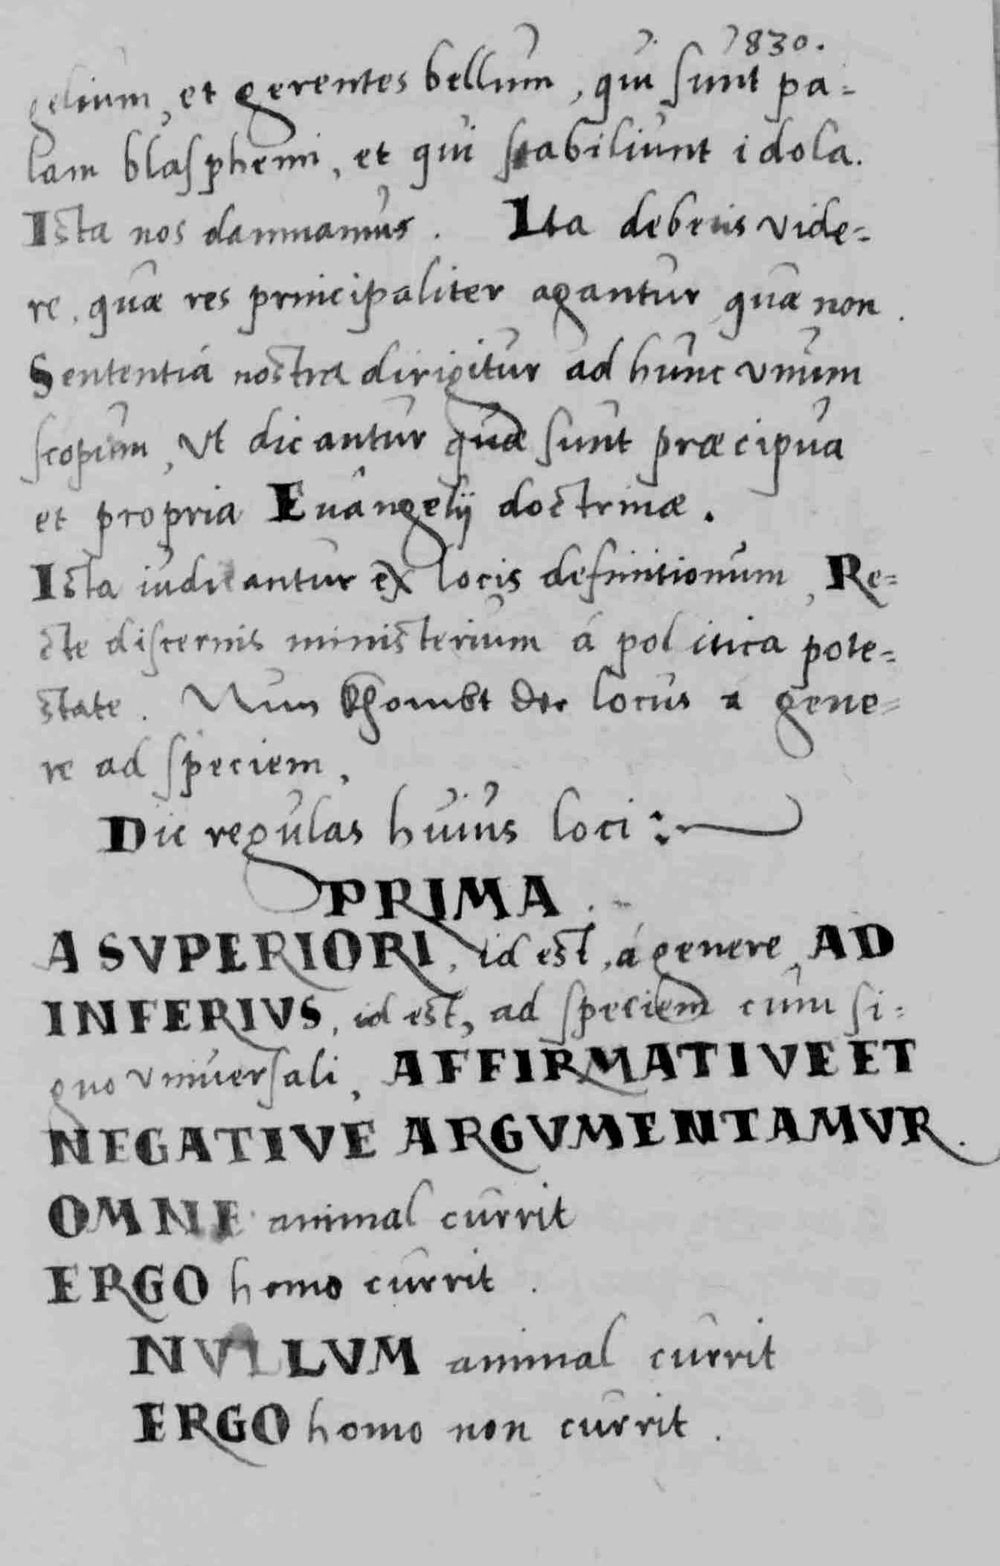 830.
gelium, et gerentes bellum, qui sunt pa-
lam blasphemi, et qui stabiliunt idola.
Ista nos damnamus. Ita debetis vide-
re, quæ res principaliter agantur quæ non.
Sententia nostra dirigitur ad hunc vnum
scopum, Vt dicantur quæ sunt præcipua
et propria Euangelij doctrinæ.
Ista iudicantur ex locis definitionum, Re-
cte discernis ministerium á politica pote-
state. Nun khombt der locus a gene-
re ad speciem.
Dic regulas huius loci:
PRIMA
A SVPERIORI, id est, á genere, AD
INFERIVS, id est, ad speciem cum si-
gno vniuersali, AFFIRMATIVE ET
NEGATIVE ARGVMENTAMVR.
OMNE animal currit
ERGO homo currit.
NVLLVM animal currit
ERGO homo non currit.